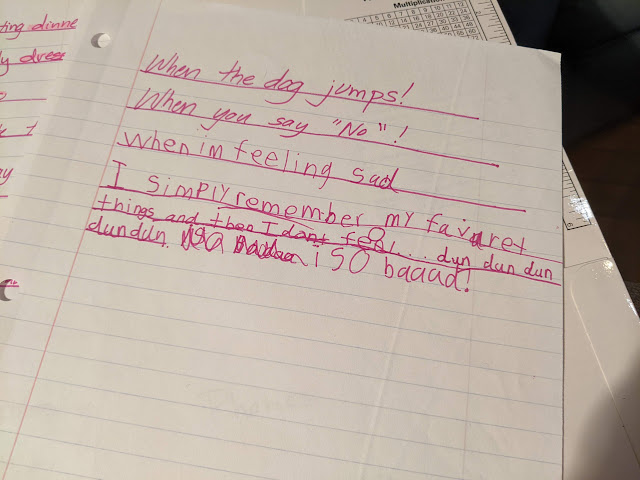 ting dinne
ly dress
Multiplication
When the dog jumps!
When you say "No"!
When im feeling sad
I simply remember my favoret
things and then I dont feel... dun dun dun
dundun. SO baaad!